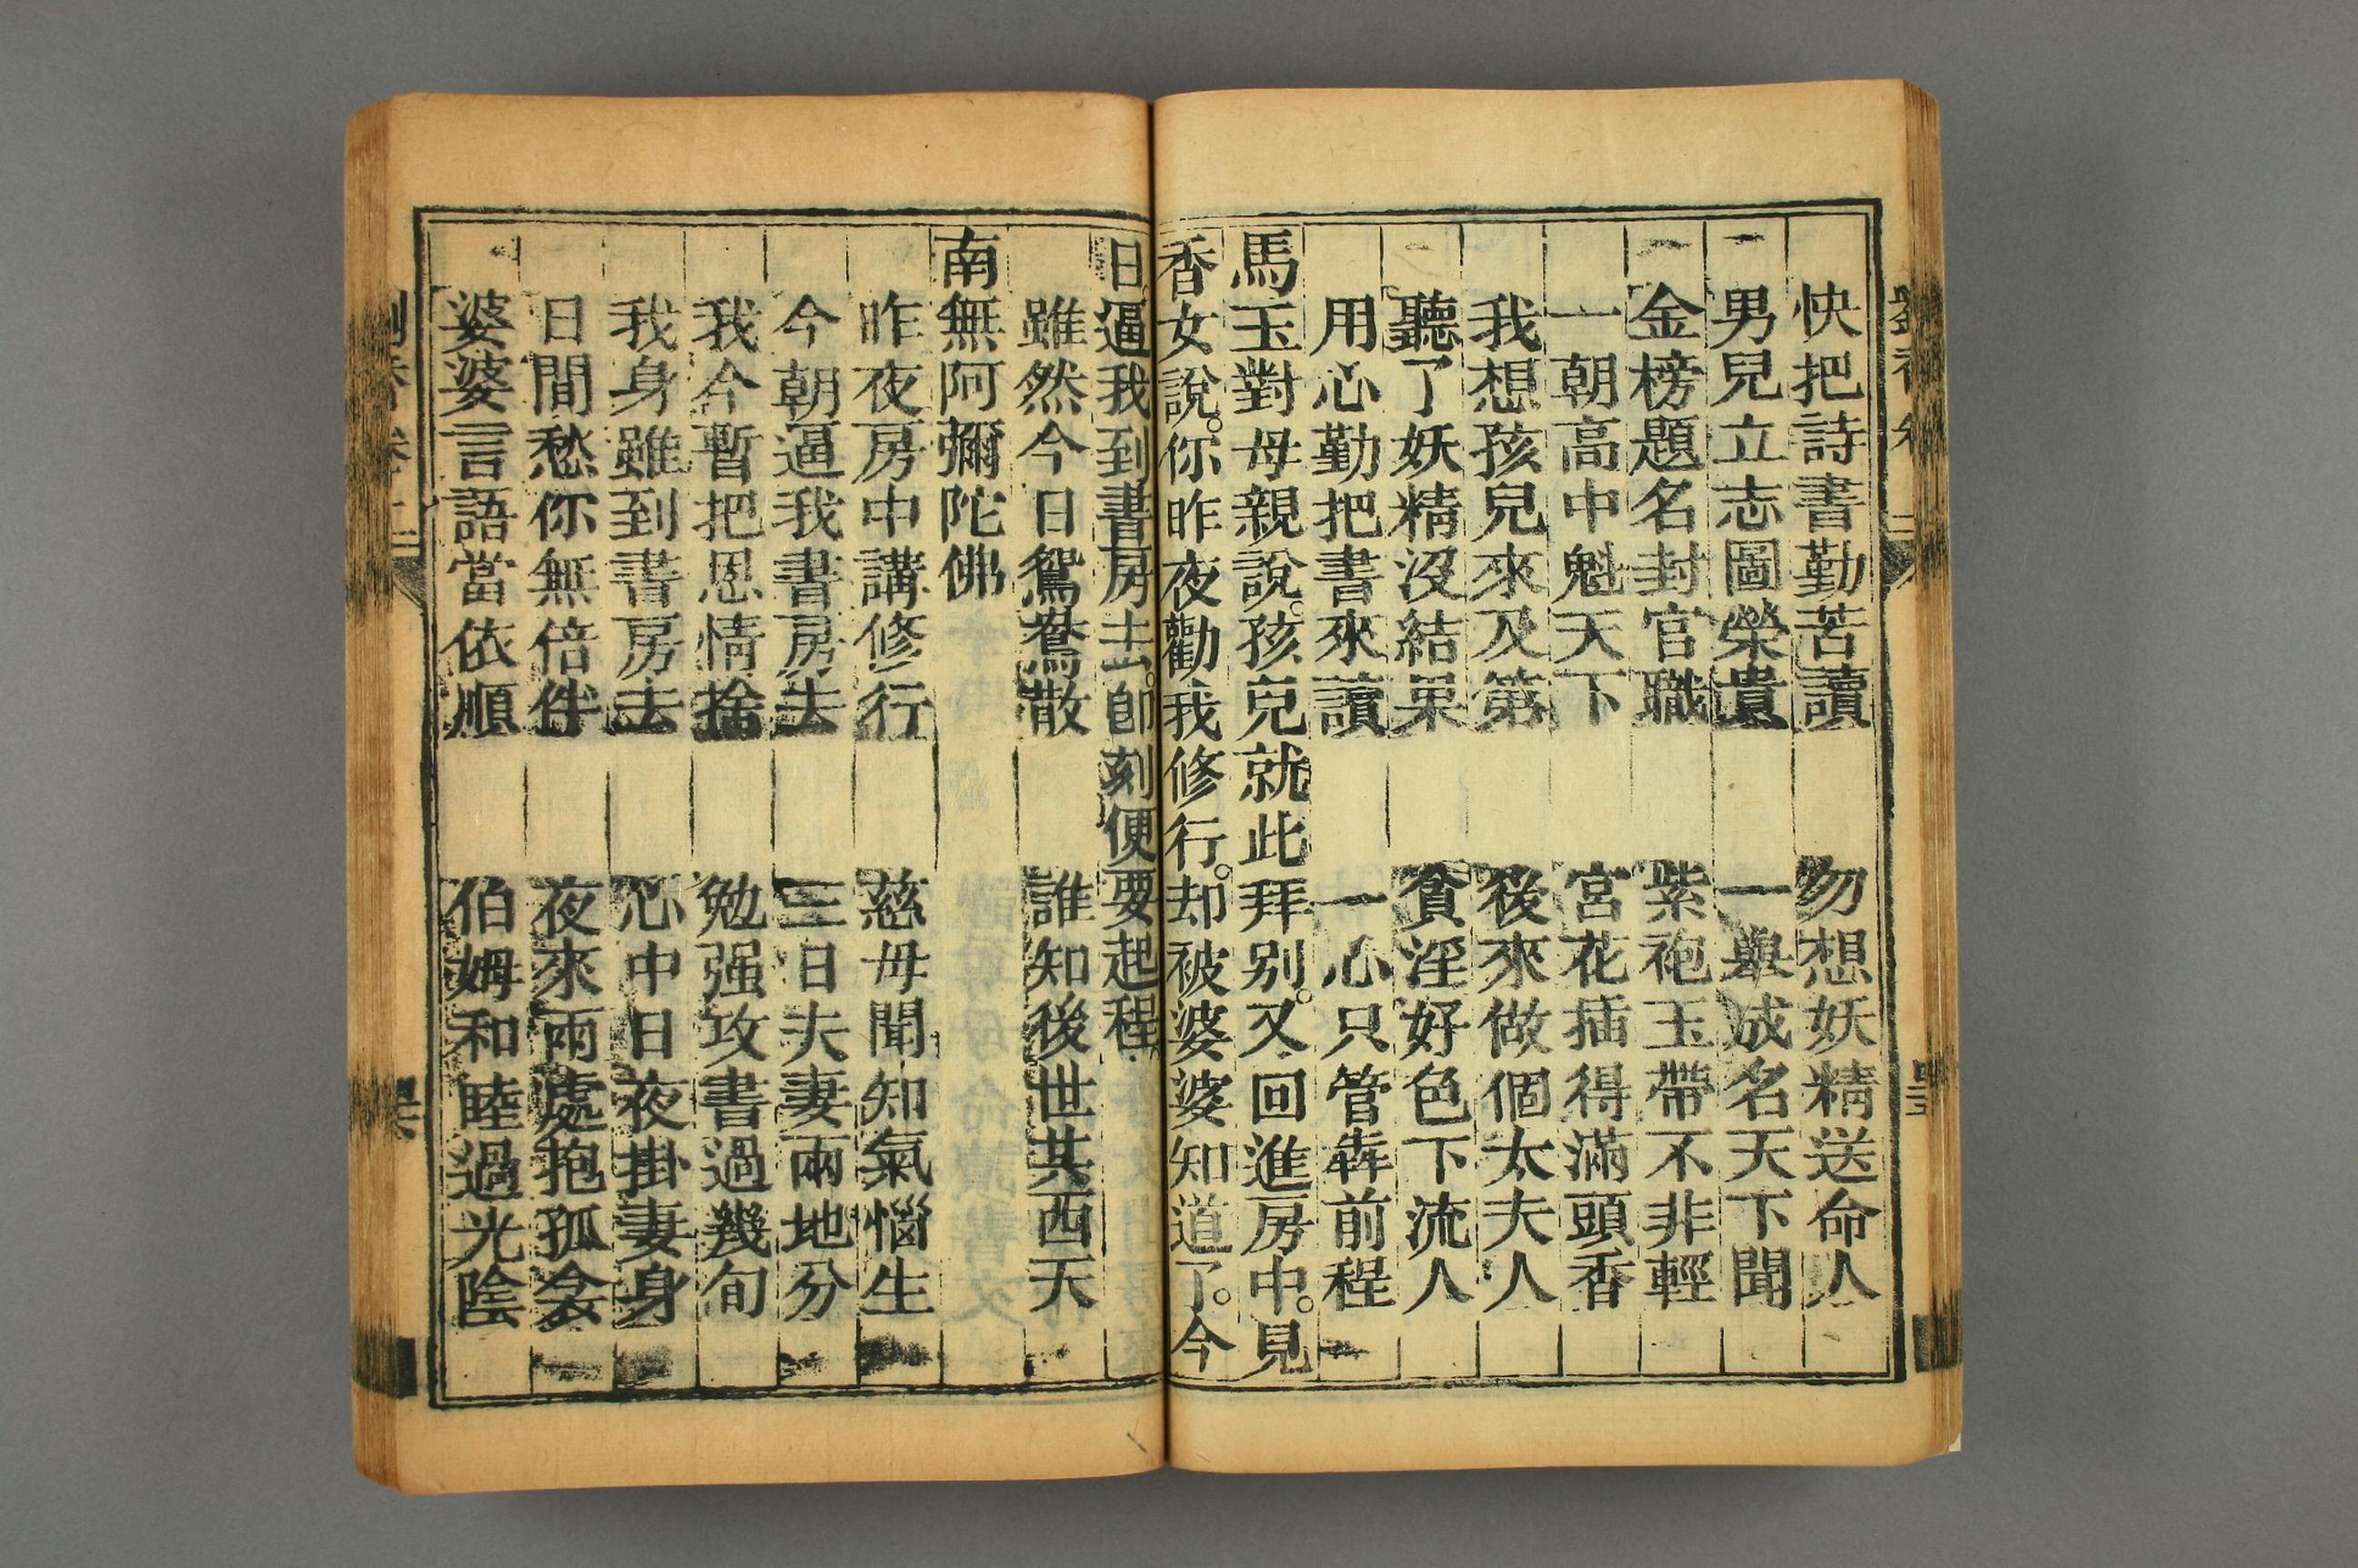 快把詩書勤苦讀 勿想妖精送命人
男兒立志圖榮貴 一舉成名天下聞
金榜題名封官職 紫袍玉帶不非輕
一朝高中魁天下 宮花插得滿頭香
我想孩兒來及第 後來做個太夫人
聽了妖精沒結果 貪淫好色下流人
用心勤把書來讀 一心只管奔前程
馬玉對母親說。孩兒就此拜别。又回進房中。見
香女說。你昨夜勸我修行。却被婆婆知道了。今
日逼我到書房去。卽刻便要起程
雖然今日鴛鴦散 誰知後世共西天
南無阿彌陀佛
昨夜房中講修行 慈母聞知氣惱生
今朝逼我書房去 三日夫妻兩地分
我今暫把恩情捨 勉强攻書過幾旬
我身雖到書房去 心中日夜掛妻身
日間愁你無倍伴 夜來兩處抱孤衾
婆婆言語當依順 伯姆和睦過光陰